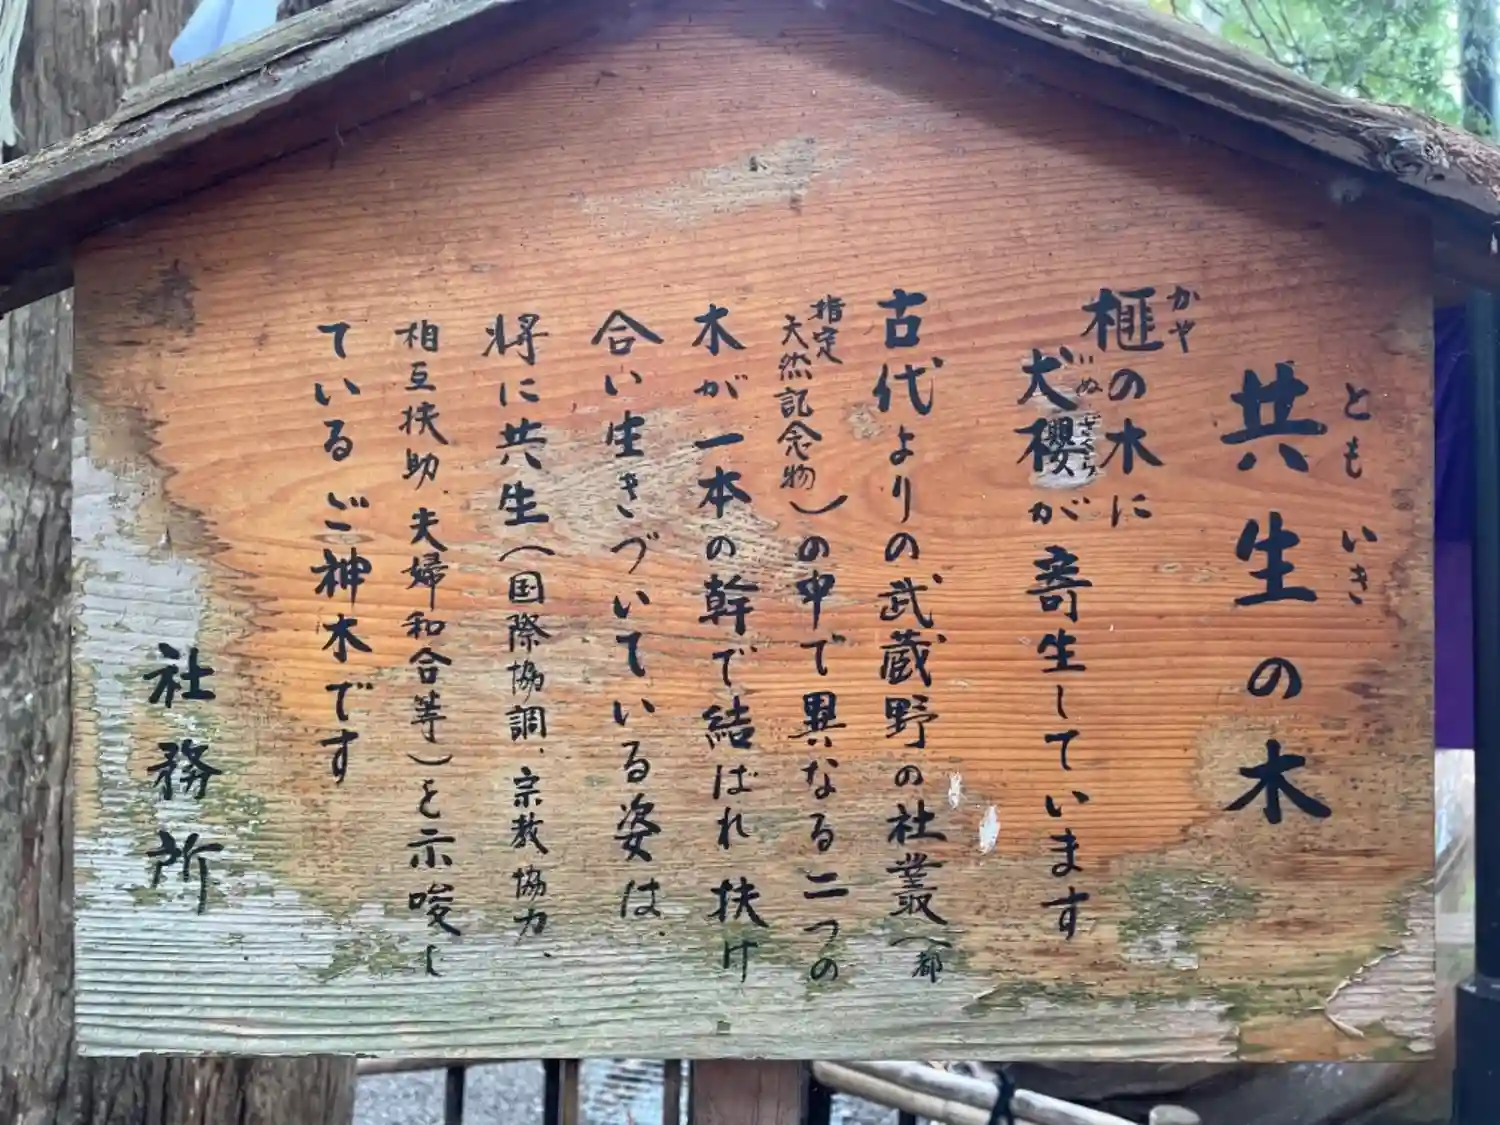 共生の木
とも いき
榧の木に
かや
犬櫻が寄生しています
いぬざくら
古代よりの武蔵野の社叢（都
指定天然記念物）の中で異なる二つの
木が一本の幹で結ばれ扶け
合い生きづいている姿は、
将に共生（国際協調、宗教協力、
相互扶助 夫婦和合等）を示唆し
ているご神木です
社務所